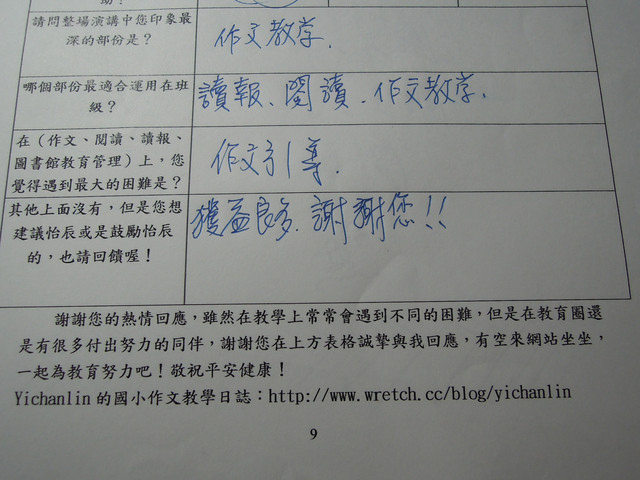 助？
請問整場演講中您印象最
深的部份是？
作文教学.
哪個部份最適合運用在班
級？
讀報、閱讀.作文教学.
在（作文、閱讀、讀報、
圖書館教育管理）上，您
覺得遇到最大的困難是？
作文引導.
其他上面沒有，但是您想
建議怡辰或是鼓勵怡辰
的，也請回饋喔！
獲益良多.謝謝您!!
謝謝您的熱情回應，雖然在教學上常常會遇到不同的困難，但是在教育圈還
是有很多付出努力的同伴，謝謝您在上方表格誠摯與我回應，有空來網站坐坐，
一起為教育努力吧！敬祝平安健康！
Yichanlin 的國小作文教學日誌：http://www.wretch.cc/blog/yichanlin
9